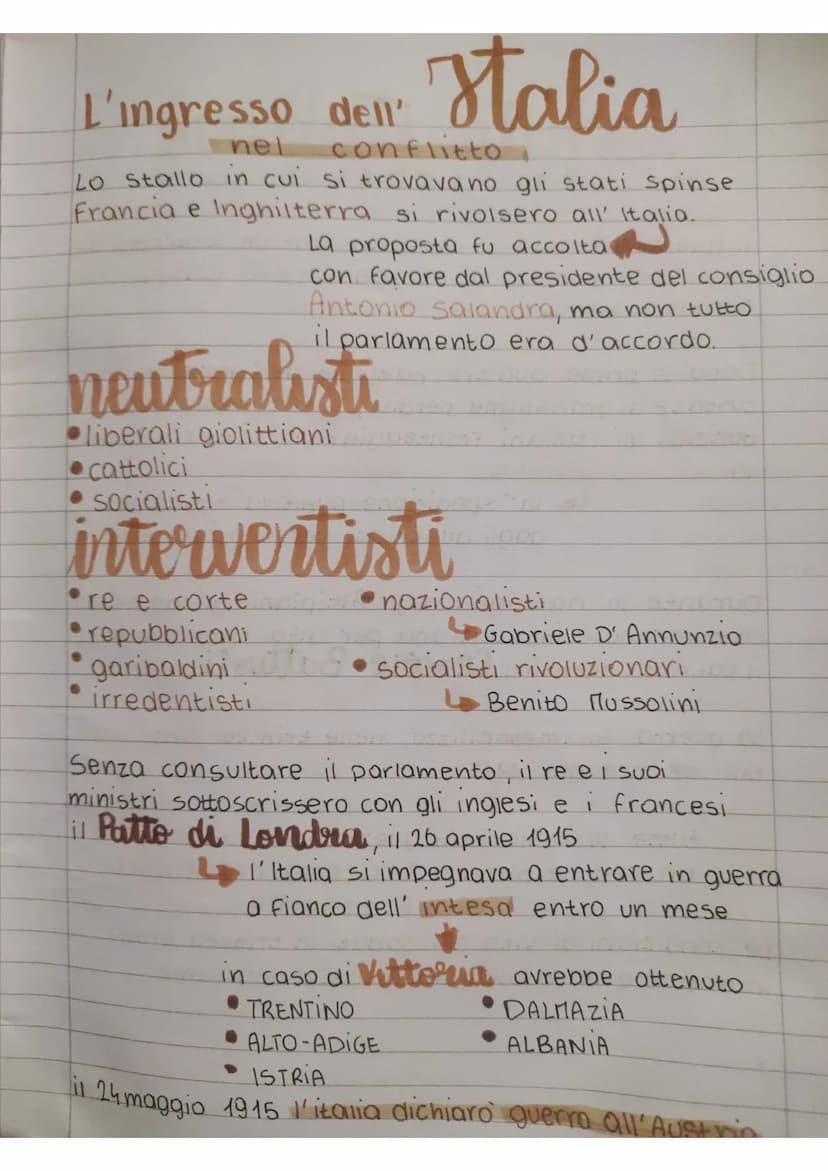 L'ingresso dell' Italia
nel conflitto
Lo stallo in cui si trovavano gli stati spinse
Francia e Inghilterra si rivolsero all' Italia.
La proposta fu accolta
con favore dal presidente del consiglio
Antonio Salandra, ma non tutto
il parlamento era d'accordo.
neutralisti
• liberali giolittiani
• cattolici
• socialisti
interventisti
• re e corte
• repubblicani
• garibaldini
• irredentisti
• nazionalisti
Gabriele D'Annunzio
• socialisti rivoluzionari
Benito Mussolini
Senza consultare il parlamento, il re e i suoi
ministri sottoscrissero con gli inglesi e i francesi
il Patto di Londra, il 26 aprile 1915
l'Italia si impegnava a entrare in guerra
a fianco dell' intesa entro un mese
in caso di Vittoria avrebbe ottenuto
• TRENTINO
• ALTO-ADIGE
• ISTRIA
• DALMAZIA
• ALBANIA
il 24 maggio 1915 l'italia dichiarò guerra all'Austria